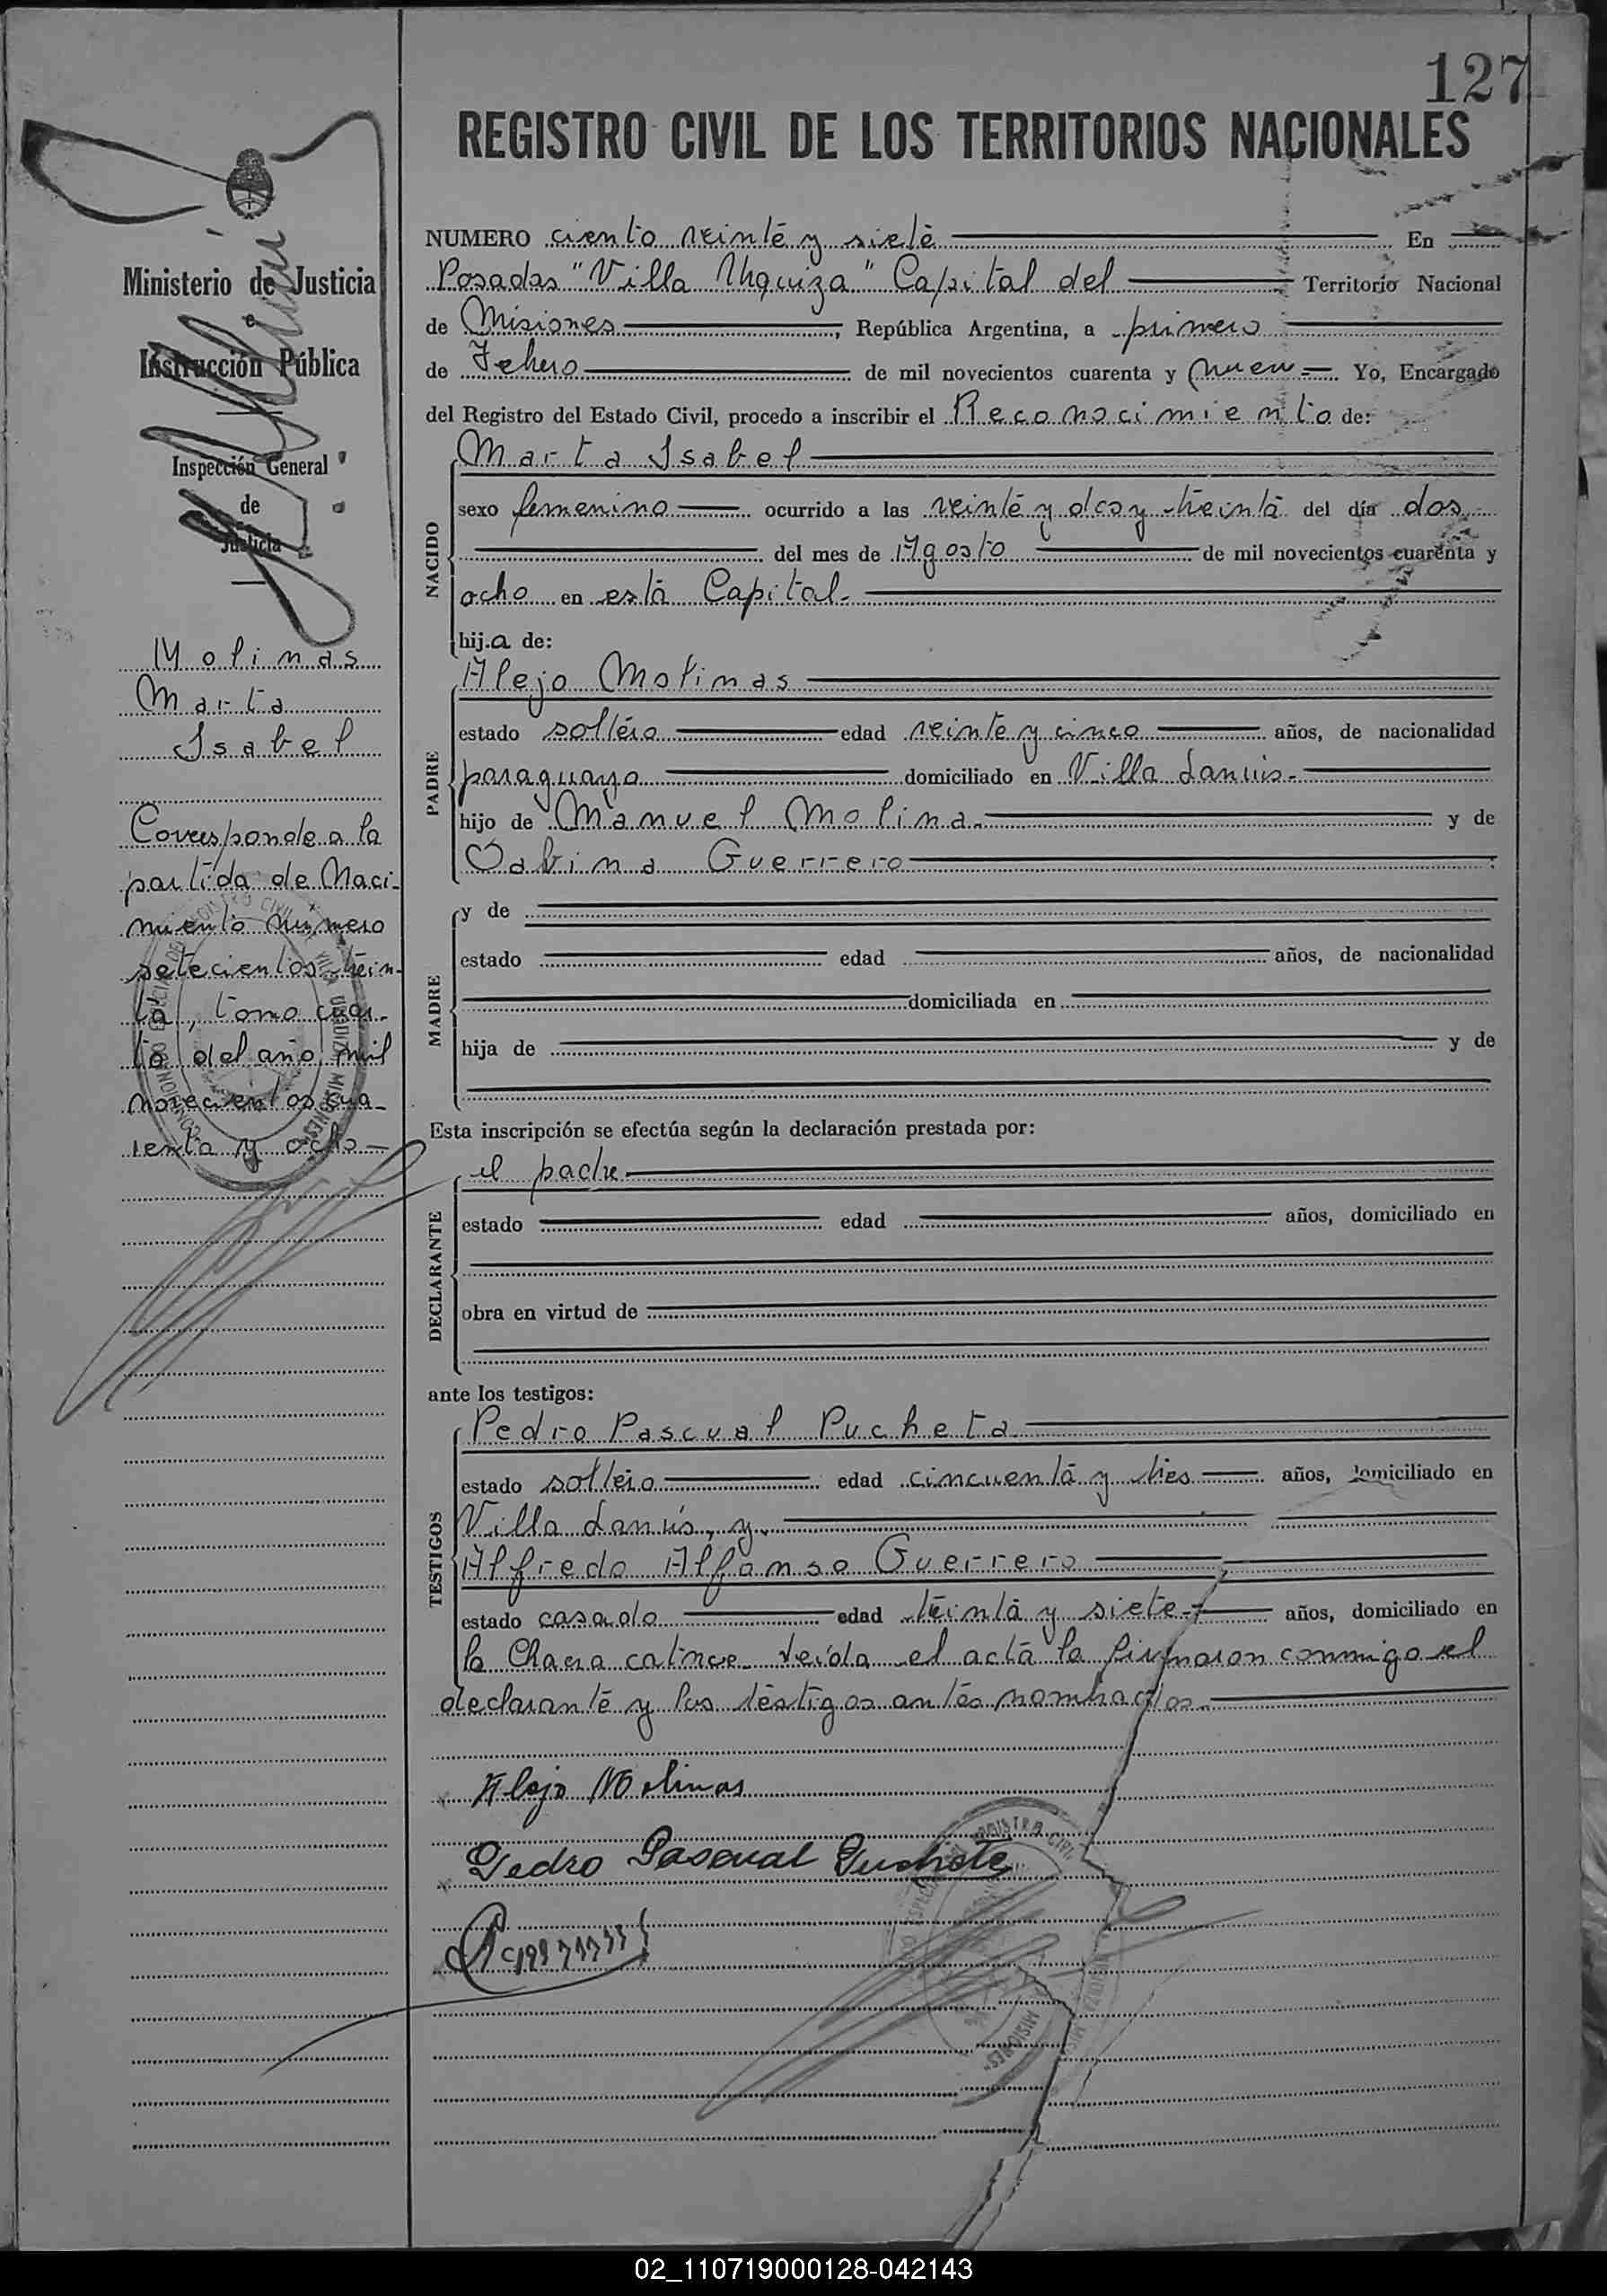 127
REGISTRO CIVIL DE LOS TERRITORIOS NACIONALES
Ministerio de Justicia
e
Instrucción Pública
Inspección General
de
Justicia
Molinas
Marta
Isabel
Corresponde a la
partida de Naci-
miento número
setecientos trein-
ta, tomo cuar-
to del año mil
novecientos cua-
renta y ocho
NUMERO ciento veinte y siete En
Posadas "Villa Urquiza" Capital del Territorio Nacional
de Misiones, República Argentina, a primero
de Febrero de mil novecientos cuarenta y nueve Yo, Encargado
del Registro del Estado Civil, procedo a inscribir el Reconocimiento de:
Marta Isabel
NACIDO
sexo femenino ocurrido a las veinte y dos y treinta del día dos
del mes de Agosto de mil novecientos cuarenta y
ocho en esta Capital.
hija de:
Alejo Molinas
PADRE
estado soltero edad veinte y cinco años, de nacionalidad
paraguayo domiciliado en Villa Lanús.
hijo de Manuel Molina y de
Sabina Guerrero
MADRE
y de
estado edad años, de nacionalidad
domiciliada en
hija de y de
Esta inscripción se efectúa según la declaración prestada por:
el padre
DECLARANTE
estado edad años, domiciliado en
obra en virtud de
ante los testigos:
Pedro Pascual Pucheta
TESTIGOS
estado soltero edad cincuenta y tres años, domiciliado en
Villa Lanús, y
Alfredo Alfonso Guerrero
estado casado edad treinta y siete años, domiciliado en
la Chacra catorce leída el acta la firmaron conmigo el
declarante y los testigos antes nombrados.
Alejo Molinas
Pedro Pascual Pucheta
02_110719000128-042143